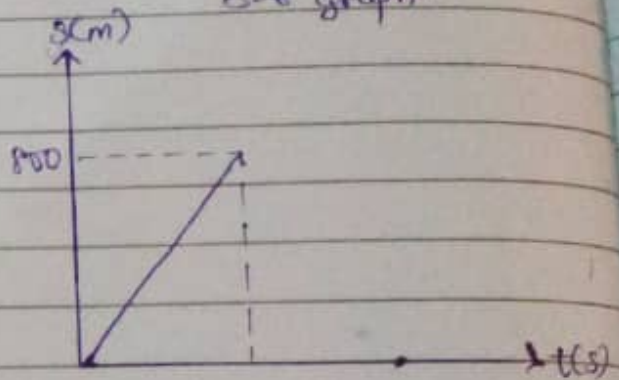 s-t graph
s(m)
800
t(s)